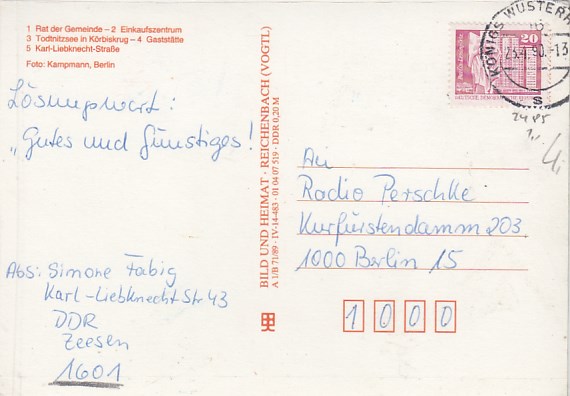 1 Rat der Gemeinde – 2 Einkaufszentrum
3 Todnitzsee in Körbiskrug – 4 Gaststätte
5 Karl-Liebknecht-Straße
Foto: Kampmann, Berlin
Lösungswort:
„Gutes und Günstiges!
Abs: Simone Fabig
Karl-Liebknecht Str 43
DDR
Zeesen
1601
BILD UND HEIMAT · REICHENBACH (VOGTL)
A 1/B 71/89 · IV-14-483 · 01 04 07 519 · DDR 0,20 M
20
KÖNIGS WUSTERH
23.4.90.-13
s
2485
An
Radio Perschke
Kurfürstendamm 203
1000 Berlin 15
1 0 0 0